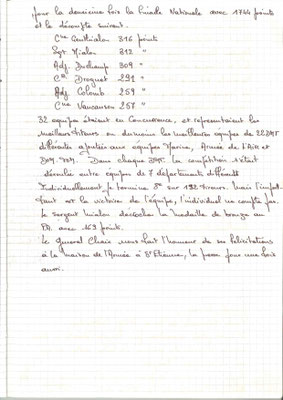 pour la deuxième fois la finale Nationale avec 1744 points
et le décompte suivant.
Cne Genthialon 316 points
Sgt Mialon 312 "
Adj. Duchamp 309 "
Droguet 291 "
Adj. Colomb 259 "
Cne Vaucanson 257 "
32 équipes étaient en concurrence, et représentaient les
meilleurs tireurs ou du moins les meilleures équipes de
différentes ajoutées aux équipes Marine, Armée de l'Air et
Dans chaque la compétition s'était
déroulée entre équipes de 7 départements différents
Individuellement je termine 8e sur 192 tireurs. Mais l'impor-
tant est la victoire de l'équipe, l'individuel ne compte pas.
Le Sergent Mialon décrochera la médaille de bronze au
PA. avec 163 points.
Le Général Chaix nous fait l'honneur de ses félicitations
à la maison de l'Armée à St Etienne, la presse pour une fois
aussi.